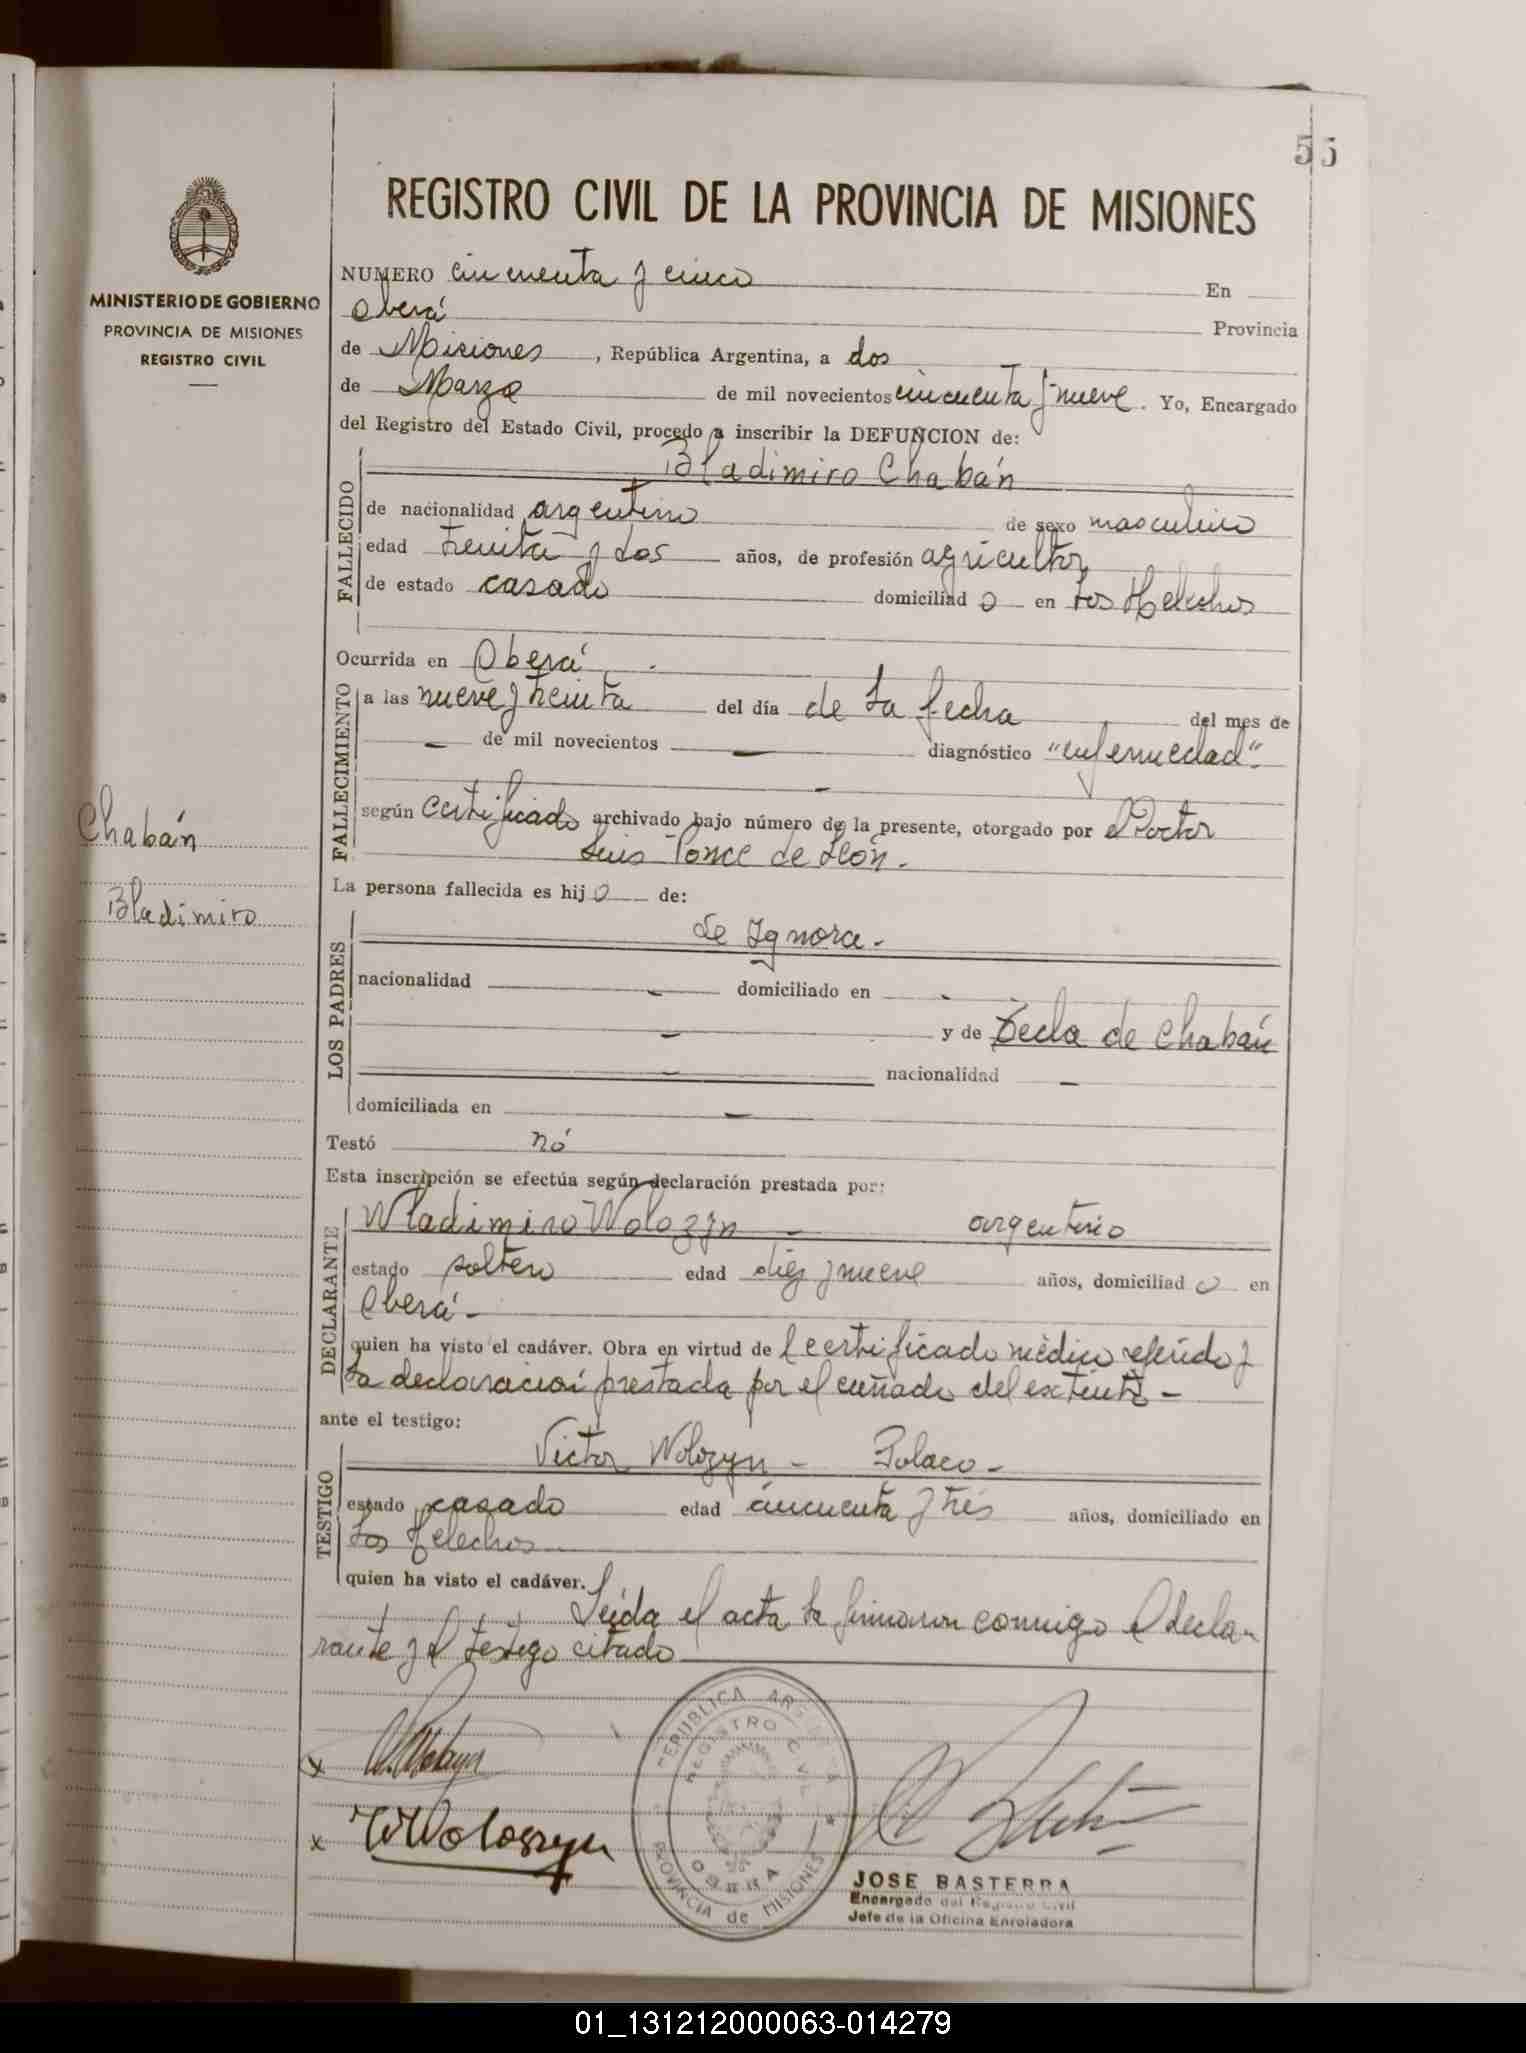 55
MINISTERIO DE GOBIERNO
PROVINCIA DE MISIONES
REGISTRO CIVIL
REGISTRO CIVIL DE LA PROVINCIA DE MISIONES
NUMERO cincuenta y cinco En
Oberá Provincia
de Misiones, República Argentina, a dos
de Marzo de mil novecientos cincuenta y nueve. Yo, Encargado
del Registro del Estado Civil, procedo a inscribir la DEFUNCION de:
Bladimiro Chabán
FALLECIDO
de nacionalidad argentino de sexo masculino
edad treinta y dos años, de profesión agricultor
de estado casado domiciliad o en Los Helechos
Ocurrida en Oberá.
FALLECIMIENTO
a las nueve y treinta del día de la fecha del mes de
— de mil novecientos — diagnóstico "enfermedad".
—
según certificado archivado bajo número de la presente, otorgado por el Doctor
Luis Ponce de León.
Chabán
Bladimiro
La persona fallecida es hij o de:
LOS PADRES
Se Ignora.-
nacionalidad - domiciliado en -
- y de Tecla de Chabán
- nacionalidad -
domiciliada en —
Testó nó
Esta inscripción se efectúa según declaración prestada por:
DECLARANTE
Wladimiro Wolozyn - argentino
estado soltero edad diez y nueve años, domiciliad o en
Oberá-
quien ha visto el cadáver. Obra en virtud de l certificado médico referido y
la declaración prestada por el cuñado del extinto -
ante el testigo:
TESTIGO
Victor Wolozyn - Polaco -
estado casado edad cincuenta y tres años, domiciliado en
Los Helechos
quien ha visto el cadáver. Leída el acta la firmaron conmigo el decla-
rante y el testigo citado
x
x W Woloszyn
REPUBLICA ARGENTINA
REGISTRO CIVIL
OBERA
PROVINCIA de MISIONES
JOSE BASTERRA
Encargado del Registro Civil
Jefe de la Oficina Enroladora
01_131212000063-014279